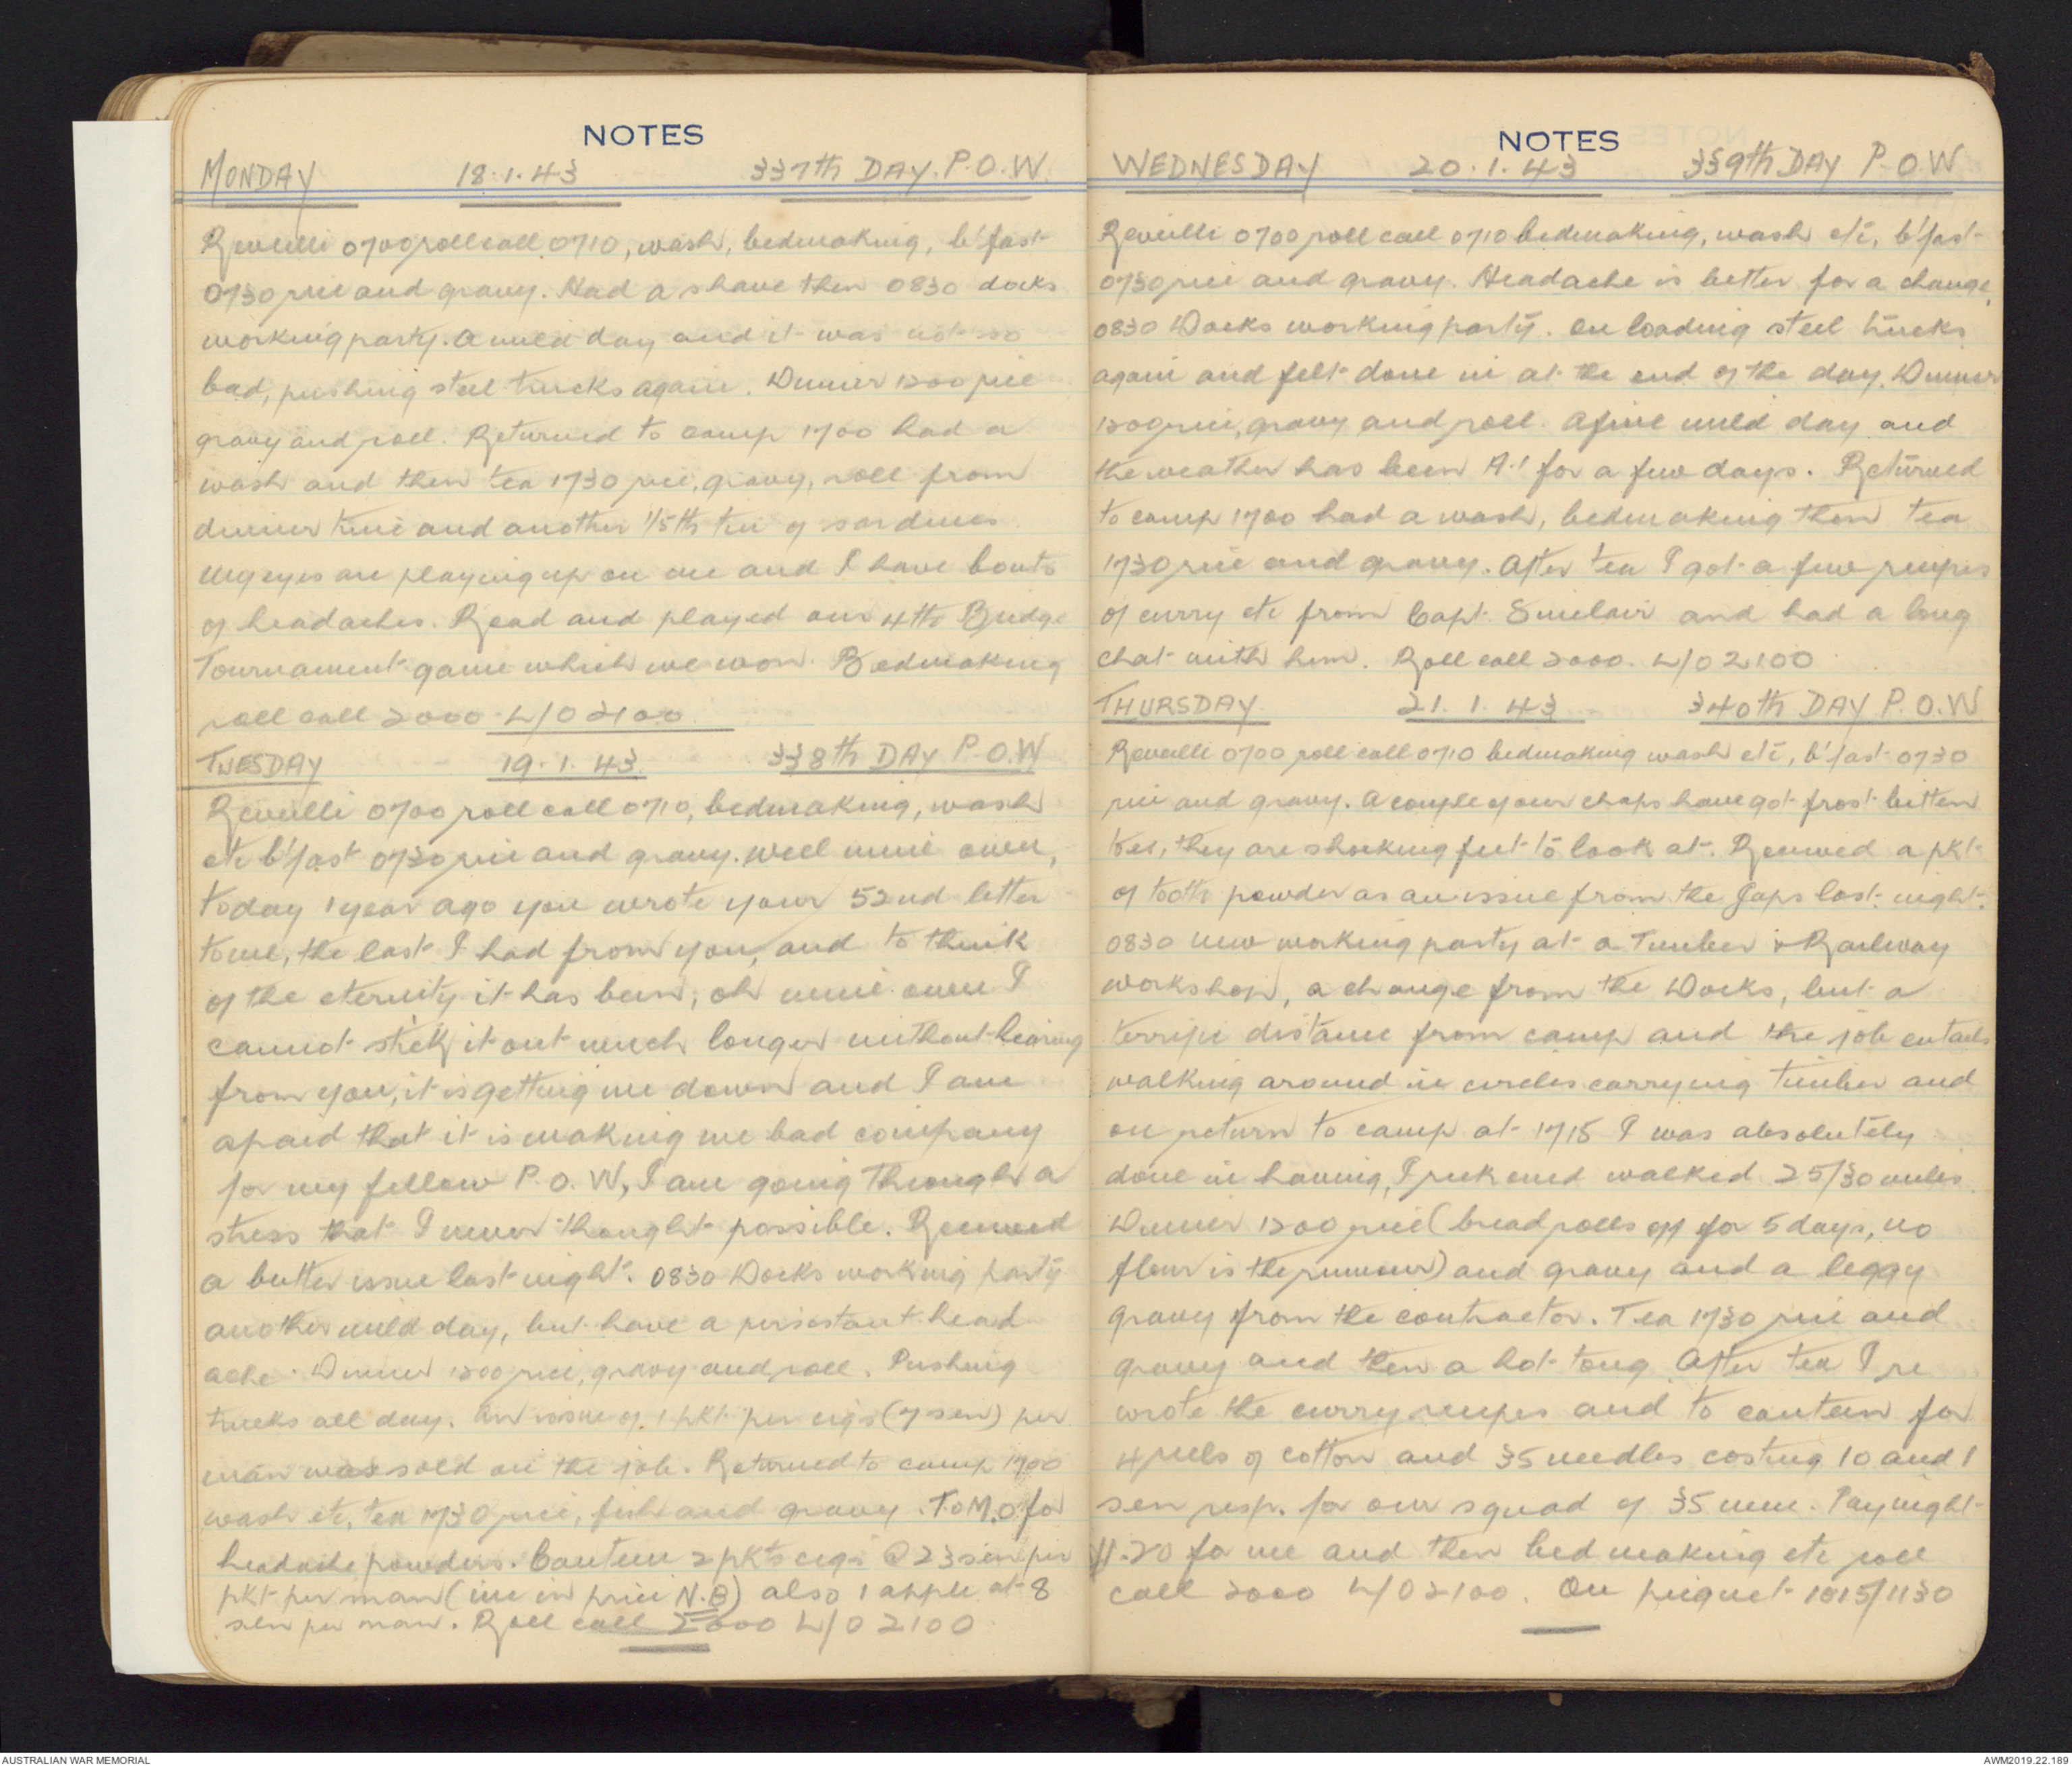 NOTES
MONDAY 18.1.43 337th DAY. P.O.W.
Reveilli 0700 roll call 0710, wash, bedmaking, b'fast
0730 rice and gravy. Had a shave then 0830 docks
working party. A mild day and it was not so
bad, pushing steel trucks again. Dinner 1200 rice
gravy and roll. Returned to camp 1700 had a
wash and then tea 1730 rice, gravy, roll from
dinner time and another 1/5th tin of sardines.
My eyes are playing up on me and I have bouts
of headaches. Read and played our 4th Bridge
Tournament game which we won. Bedmaking
roll call 2000 L/O 2100
TUESDAY 19.1.43. 338th DAY P.O.W
Reveilli 0700 roll call 0710, bedmaking, wash
etc b'fast 0730 rice and gravy. Well mine own,
today 1 year ago you wrote your 52nd letter
to me, the last I had from you, and to think
of the eternity it has been, oh mine own I
cannot stick it out much longer without hearing
from you, it is getting me down and I am
afraid that it is making me bad company
for my fellow P.O.W, I am going through a
stress that I never thought possible. Received
a butter issue last night. 0830 Docks working party
another mild day, but have a persistant head
ache. Dinner 1200 rice, gravy and roll. Pushing
trucks all day. An issue of 1 pkt per cigs (7 sen) per
man was sold on the job. Returned to camp 1700
wash etc, tea 1730 rice, fish and gravy. To M.O for
headache powders. Canteen 2 pkts cigs @ 23 sen per
pkt per man (inc in price N.B) also 1 apple at 8
sen per man. Roll call 2000 L/O 2100
NOTES
WEDNESDAY 20.1.43 339th DAY P.O.W
Reveilli 0700 roll call 0710 bedmaking, wash etc, b'fast
0730 rice and gravy. Headache is better for a change,
0830 Docks working party. On loading steel trucks
again and felt done in at the end of the day. Dinner
1200 rice, gravy and roll. A fine mild day and
the weather has been A.1 for a few days. Returned
to camp 1700 had a wash, bedmaking then tea
1730 rice and gravy. After tea I got a few recipes
of curry etc from Capt. Sinclair and had a long
chat with him. Roll call 2000. L/O 2100
THURSDAY 21.1.43 340th DAY P.O.W
Reveilli 0700 roll call 0710 bedmaking wash etc, b'fast 0730
rice and gravy. A couple of our chaps have got frost bitten
toes, they are shocking feet to look at. Received a pkt
of tooth powder as an issue from the Japs last night.
0830 new working party at a Timber & Railway
workshop, a change from the Docks, but a
terrific distance from camp and the job entails
walking around in circles carrying timber and
on return to camp at 1715 I was absolutely
done in having, I reckoned walked 25/30 miles.
Dinner 1200 rice (bread rolls off for 5 days, no
flour is the rumour) and gravy and a leggy
gravy from the contractor. Tea 1730 rice and
gravy and then a hot tong. After tea I re
wrote the curry recipes and to canteen for
4 reels of cotton and 35 needles costing 10 and 1
sen resp. for our squad of 35 men. Pay night
1.20 for me and then bed making etc roll
call 2000 L/O 2100. On picquet 1015/1130
AUSTRALIAN WAR MEMORIAL
AWM2019.22.189